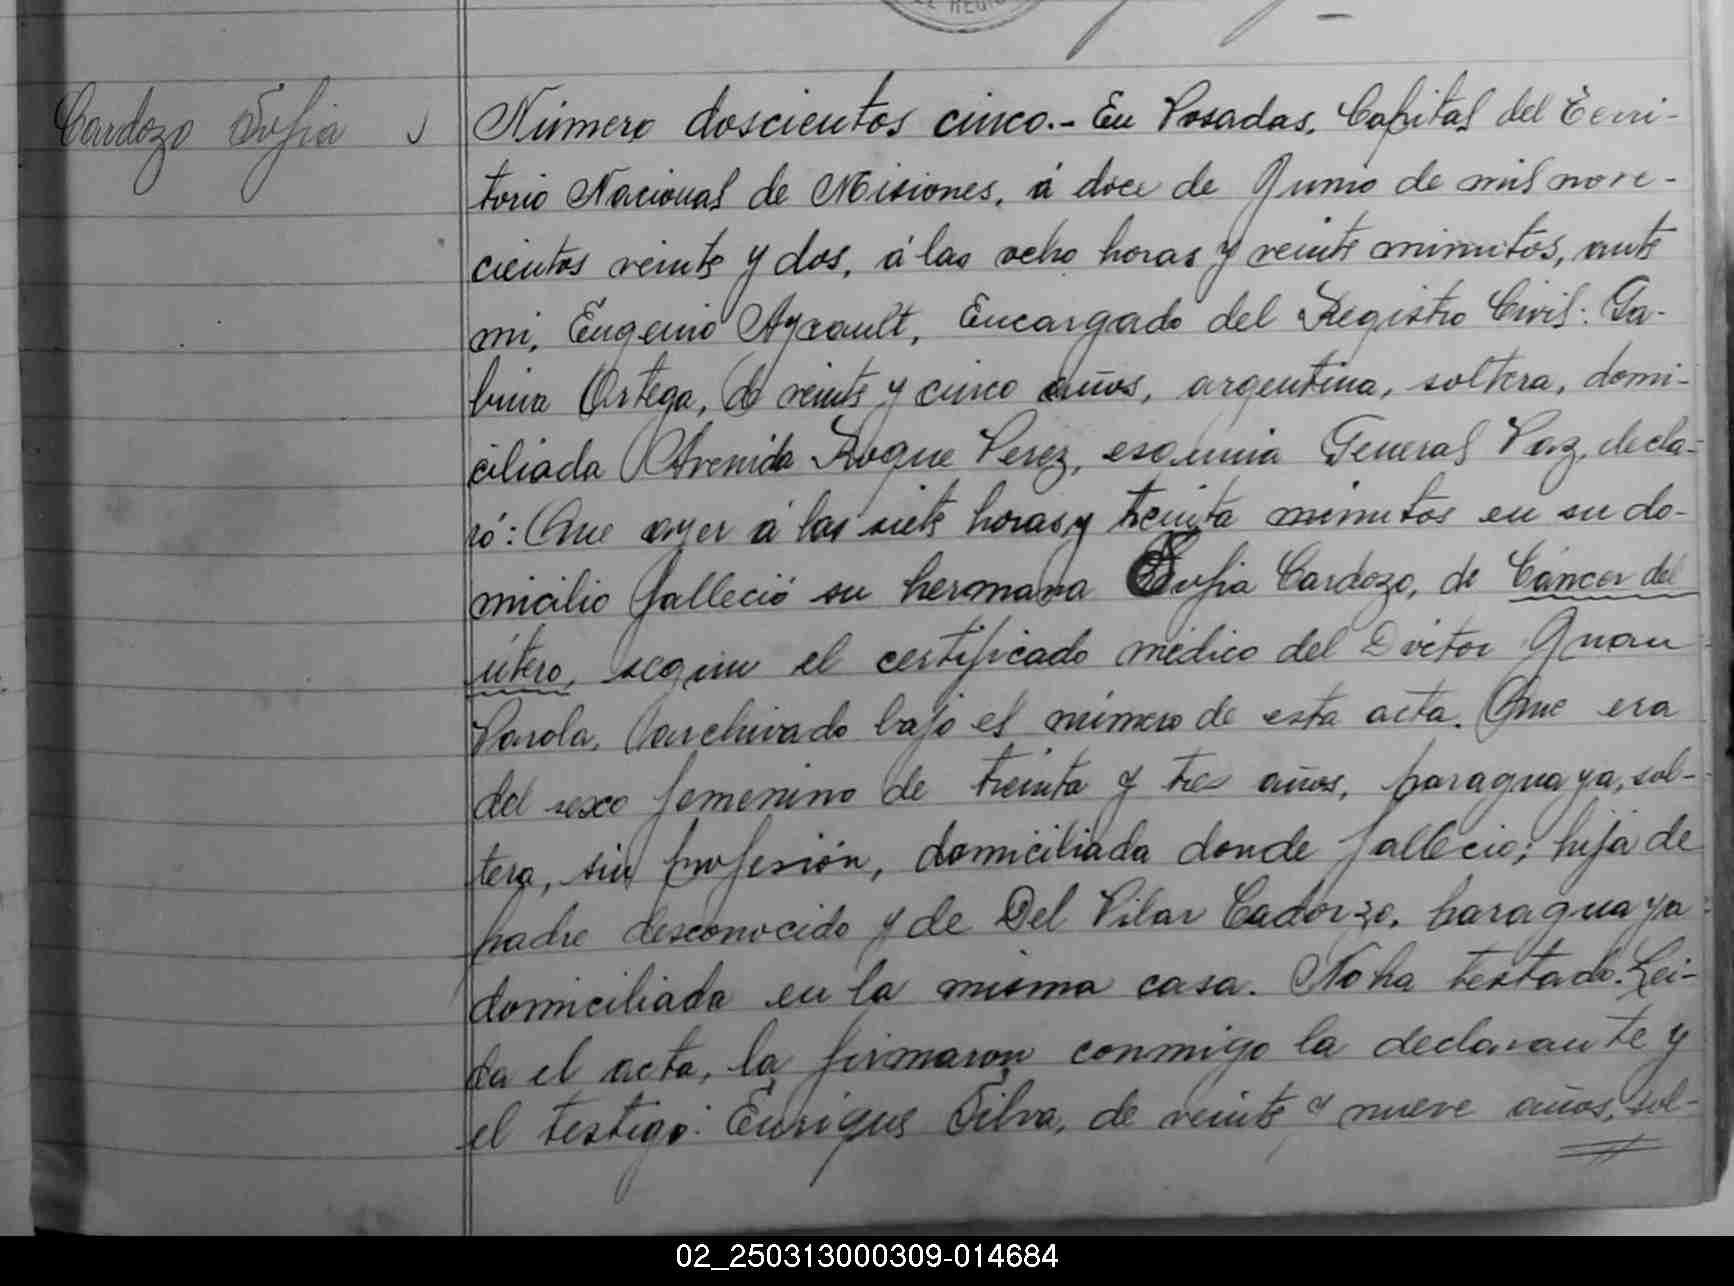 EL REGIS
Cardozo Sofia
Número doscientos cinco.- En Posadas, Capital del Terri-
torio Nacional de Misiones, á doce de Junio de mil nove-
cientos veinte y dos, á las ocho horas y veinte minutos, ante
mi, Eugenio Aycault, Encargado del Registro Civil: Ga-
bina Ortega, de veinte y cinco años, argentina, soltera, domi-
ciliada Avenida Roque Perez, esquina General Paz, decla-
ró: Que ayer á las siete horas y treinta minutos en su do-
micilio falleció su hermana Sofia Cardozo, de Cáncer del
útero, segun el certificado médico del Doctor Juan
Parola, archivado bajo el número de esta acta. Que era
del sexo femenino de treinta y tres años, paraguaya, sol-
tera, sin profesión, domiciliada donde fallecio; hija de
padre desconocido y de Del Pilar Cadorzo, paraguaya
domiciliada en la misma casa. No ha testado. Lei-
da el acta, la firmaron conmigo la declarante y
el testigo: Enrique Silva, de veinte y nueve años, sol-
02_250313000309-014684